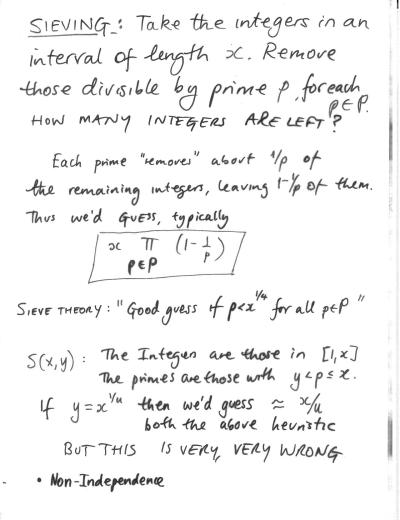 SIEVING: Take the integers in an
interval of length x. Remove
those divisible by prime p, for each
p∈P.
HOW MANY INTEGERS ARE LEFT?
Each prime "removes" about 1/p of
the remaining integers, leaving 1-1/p of them.
Thus we'd GUESS, typically
x ∏ (1-1/p)
p∈P
SIEVE THEORY: "Good guess if p<x^{1/4} for all p∈P"
S(x,y): The Integers are those in [1,x]
The primes are those with y<p≤x.
If y=x^{1/u} then we'd guess ≈ x/u
both the above heuristic
BUT THIS IS VERY, VERY WRONG
• Non-Independence